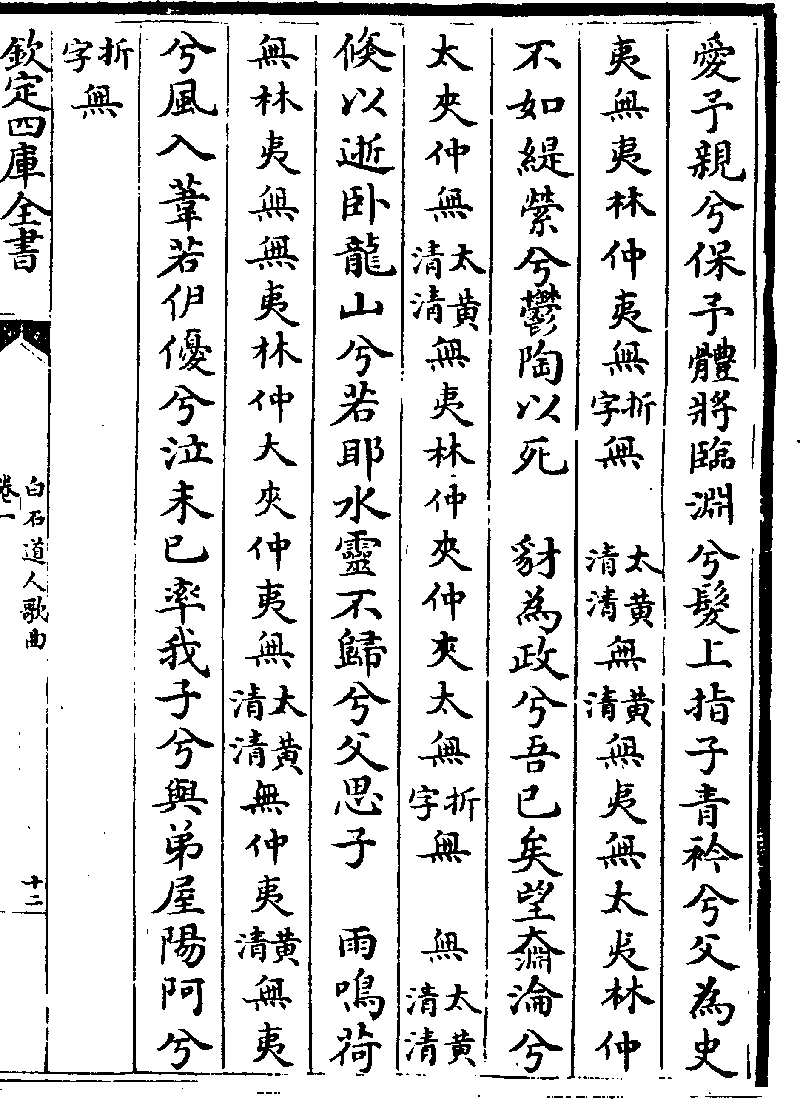 愛予親兮保予體將臨淵兮髮上指子青衿兮父為史
夷無夷林仲夷無折字無　太清黄清無黄清無夷無太夷林仲
不如緹縈兮鬱陶以死　豺為政兮吾已矣望淪兮
太夾仲無太清黄清無夷林仲夾仲夾太無折字無　無太清黄清
倐以逝卧龍山兮若耶水靈不歸兮父思子　雨鳴荷
無林夷無無夷林仲大夾仲夷無太清黄清無仲夷黄清無夷
兮風入葦若伊優兮泣未已率我子兮與弟屋陽阿兮
折字無
欽定四庫全書
白石道人歌曲
卷一
十二